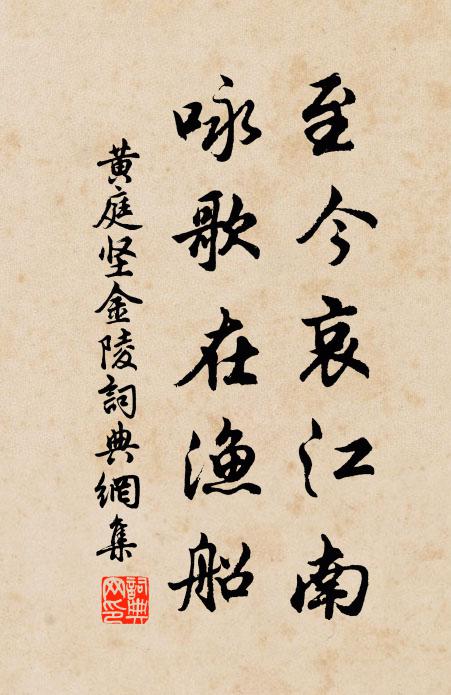 至今哀江南
咏歌在渔船
黄庭坚金陵詞典網集
詞典網印